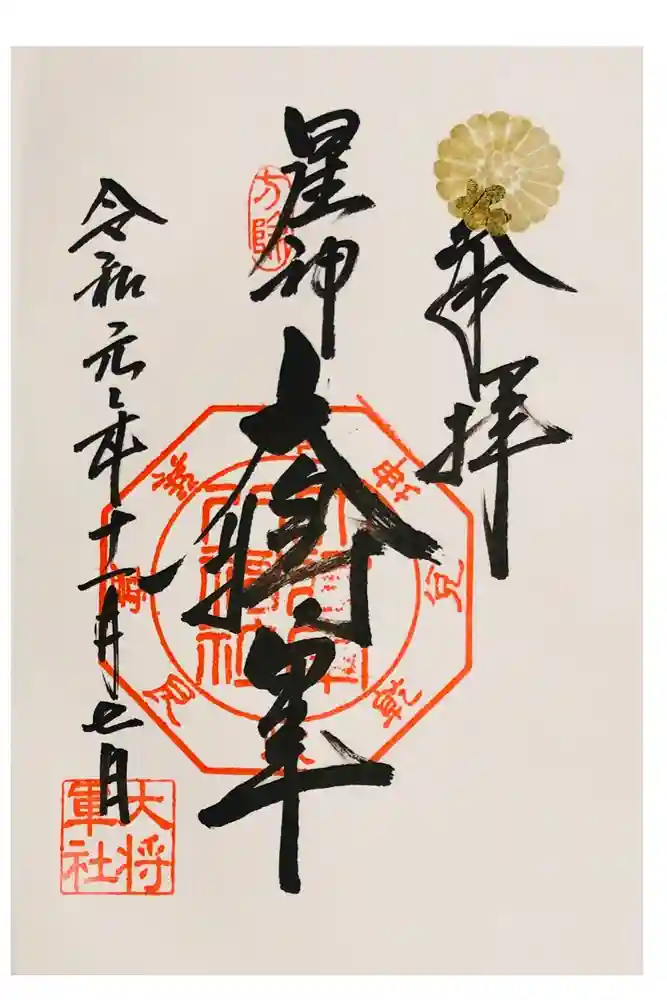 奉拝
星神
方除
大将軍
坤
兌
乾
艮
令和元年十一月七日
大将
軍社